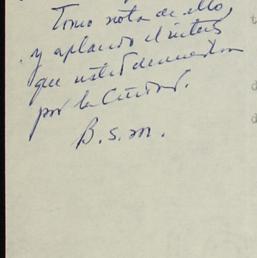 Tomo nota de ello,
y aplaudo el interés
que usted demuestra
por la Ciudad.
B. s. m.